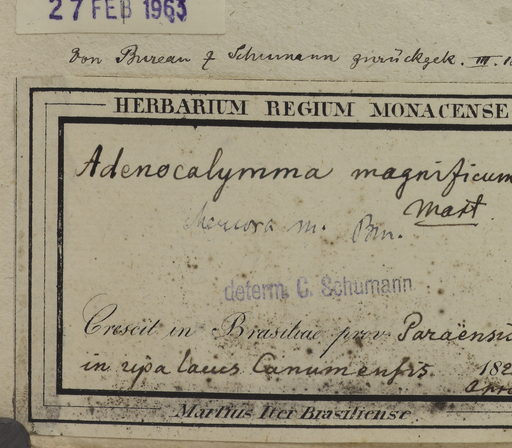 27 FEB 1963
Von Bureau & Schumann zurückgek. III.
HERBARIUM REGIUM MONACENSE
Adenocalymma magnificum
Mart.
Memora m. Bur.
determ. C. Schumann
Crescit in Brasiliae prov. Paraënsi
in ripa lacus Canumensis. 182
Apr
Martius Iter Brasiliense